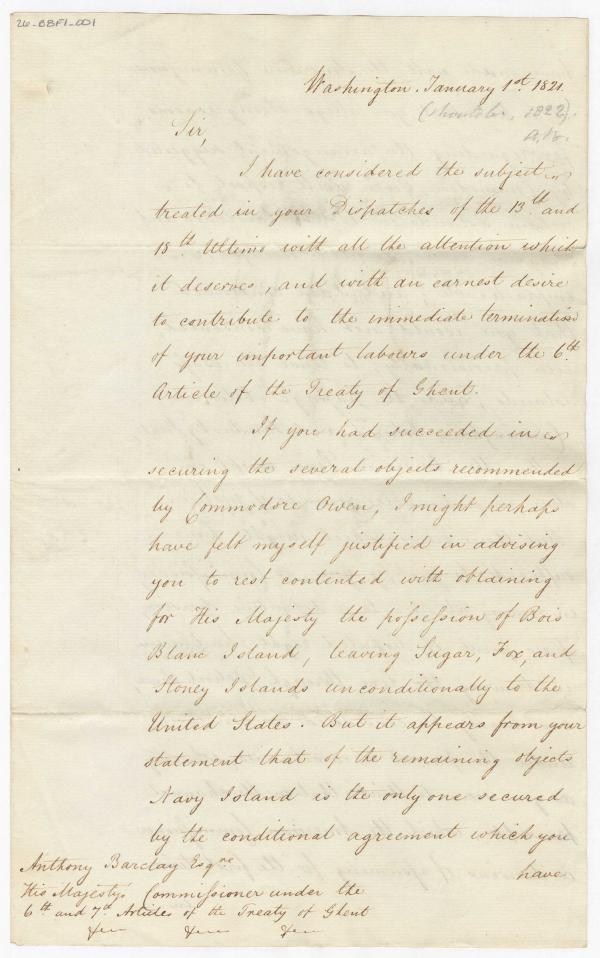 26-BBF1-001
Washington. January 1st. 1821.
(should be, 1822).
Sir,
I have considered the subject
treated in your Dispatches of the 13th and
18th Ultimo with all the attention which
it deserves, and with an earnest desire
to contribute to the immediate termination
of your important labours under the 6th
Article of the Treaty of Ghent.
If you had succeeded in
securing the several objects recommended
by Commodore Owen, I might perhaps
have felt myself justified in advising
you to rest contented with obtaining
for His Majesty the possession of Bois
Blanc Island, leaving Sugar, Fox, and
Stoney Islands unconditionally to the
United States. But it appears from your
statement that of the remaining objects
Navy Island is the only one secured
by the conditional agreement which you
have
Anthony Barclay Esqre
His Majesty's Commissioner under the
6th and 7th Articles of the Treaty of Ghent